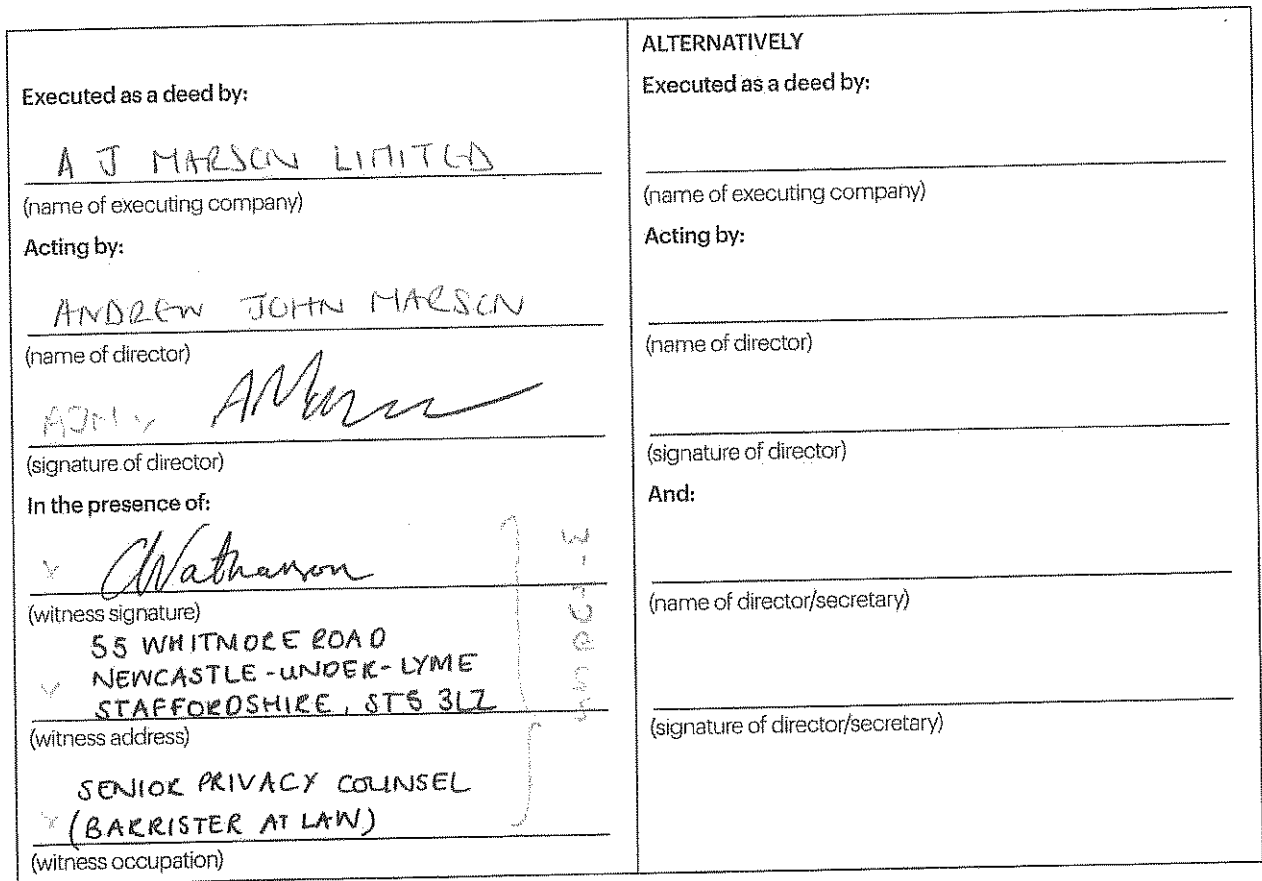 Executed as a deed by:
A J MARSON LIMITED
(name of executing company)
Acting by:
ANDREW JOHN MARSON
(name of director)
AJM
(signature of director)
In the presence of:
(witness signature)
55 WHITMORE ROAD
NEWCASTLE-UNDER-LYME
STAFFORDSHIRE, ST5 3LZ
(witness address)
SENIOR PRIVACY COUNSEL
(BARRISTER AT LAW)
(witness occupation)
ALTERNATIVELY
Executed as a deed by:
(name of executing company)
Acting by:
(name of director)
(signature of director)
And:
(name of director/secretary)
(signature of director/secretary)